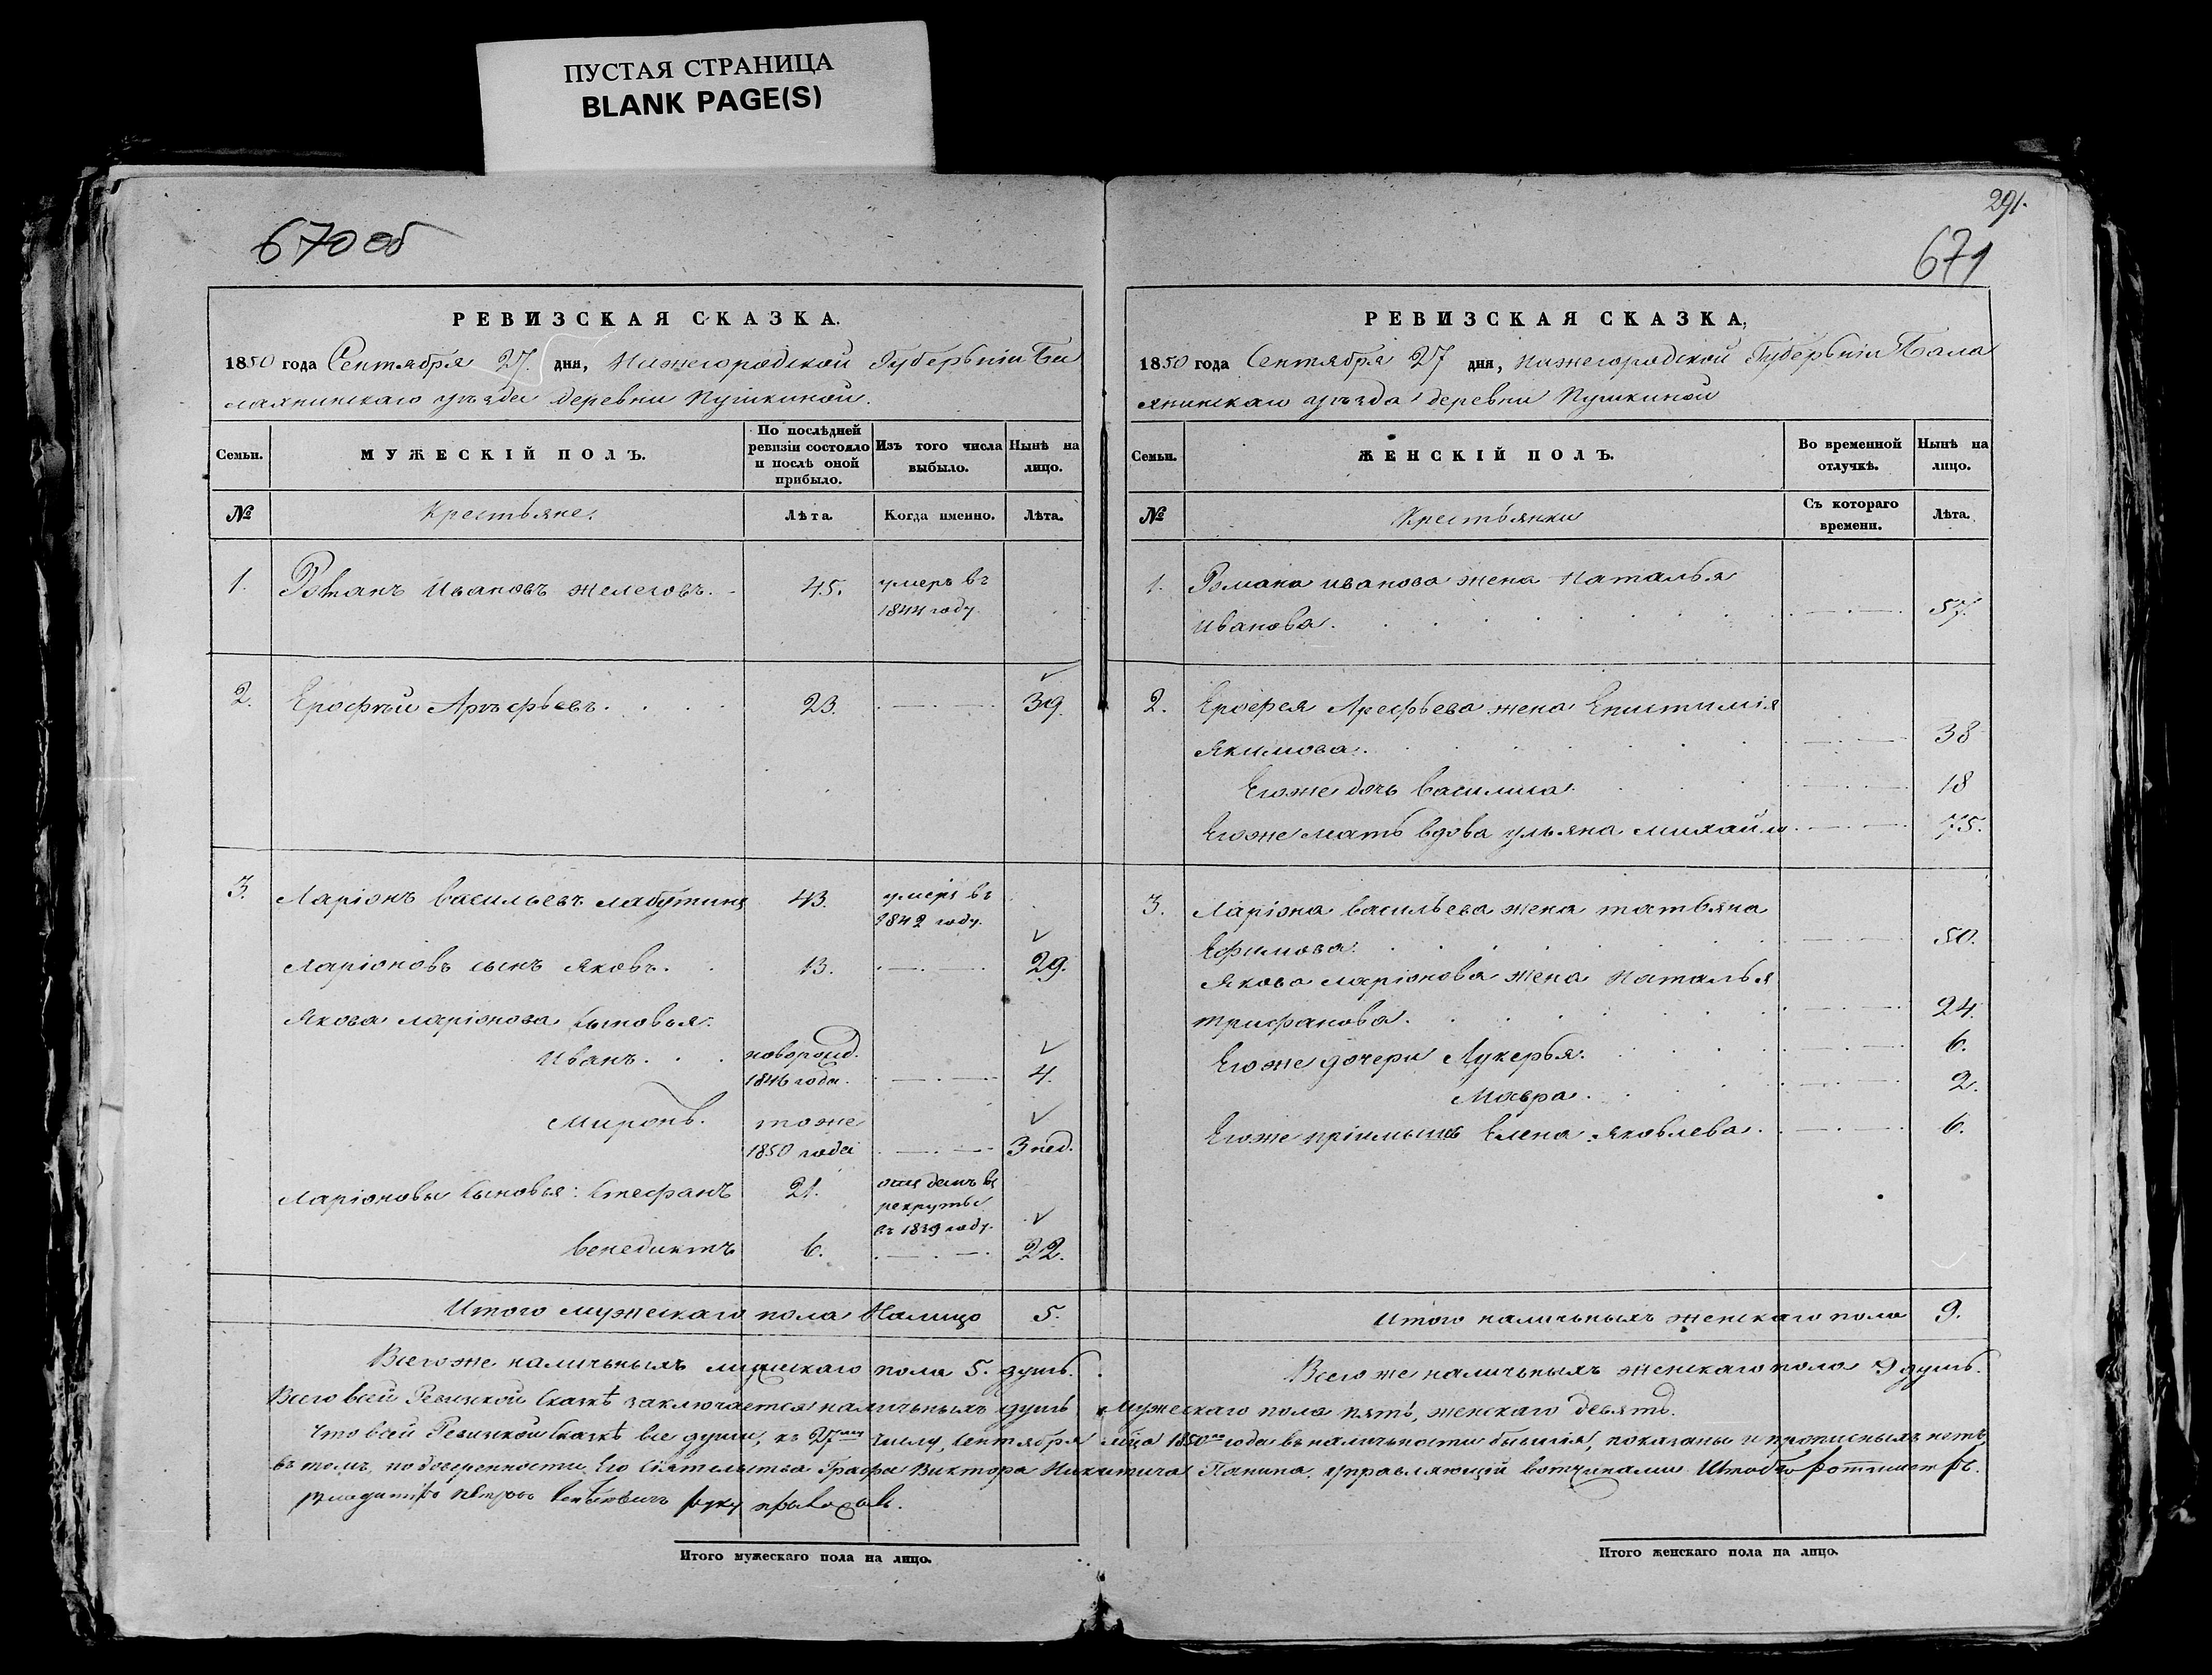 ПУСТАЯ СТРАНИЦА
BLANK PAGE(S)
670 об
РЕВИЗСКАЯ СКАЗКА.
1850 года Сентября 27. дня, Нижегородской Губерьніи Ба
лахнинскаго уъзда деревни Пушкиной.
Семьи.
МУЖЕСКІЙ ПОЛЪ.
По послѣдней ревизіи состояло и послѣ оной прибыло.
Изъ того числа выбыло.
Нынѣ на лицо.
№
Крестьяне.
Лѣта.
Когда именно.
Лѣта.
1. Романъ Ивановъ 45. умеръ въ
1844 году.
2. Ерофѣй Арѣфьевъ. 23. 39.
3. Ларіонъ Васильевъ Лабутинъ 43. умеръ въ
1842 году.
Ларіоновъ сынъ Яковъ. 13. 29.
Якова Ларіонова сыновья:
Иванъ. новорожд.
1846 года. 4.
Миронъ. тоже
1850 года 3 нед.
Ларіоновы сыновья: Стефанъ 21. отданъ въ
рекруты
въ 1839 году.
Венедиктъ 6. 22.
Итого мужескаго пола Налицо 5.
Всего же наличьныхъ мужескаго пола 5. душъ.
Итого мужескаго пола на лицо.
291.
671
РЕВИЗСКАЯ СКАЗКА,
1850 года Сентября 27 дня, Нижегородской Губерьніи Бала
хнинскаго уъзда деревни Пушкиной
Семьи.
ЖЕНСКІЙ ПОЛЪ.
Во временной отлучкѣ.
Нынѣ на лицо.
№
Крестьянки
Съ котораго времени.
Лѣта.
1. Романа Иванова жена Наталья
Иванова. 57.
2. Ерофея Арефьева жена Епистимія
Якимова. 38
Его же дочь Василиса. 18
Его же мать вдова Ульяна Михайло. 75.
3. Ларіона Васильева жена Татьяна
Ефимова. 50.
Якова Ларіонова жена Наталья
Трифанова. 24.
Его же дочери Лукерья. 6.
Мавра. 2.
Его же пріимышъ Елена Яковлева. 6.
Итого наличьныхъ женскаго пола 9.
Всего же наличьныхъ женскаго пола 9 душъ.
Всего в сей Ревизской Сказкѣ заключается наличьныхъ душъ мужескаго пола пять, женскаго девять.
Что в сей Ревизской Сказкѣ все души, къ 27му числу, Сентября мца 1850го года въ наличьности бывшія, показаны и прописныхъ нетъ,
въ томъ, по доверенности Его Сіятельства Графа Виктора Никитича Панина, управляющій вотчинами Штабъ Ротмистръ
руку приложилъ.
Итого женскаго пола на лицо.